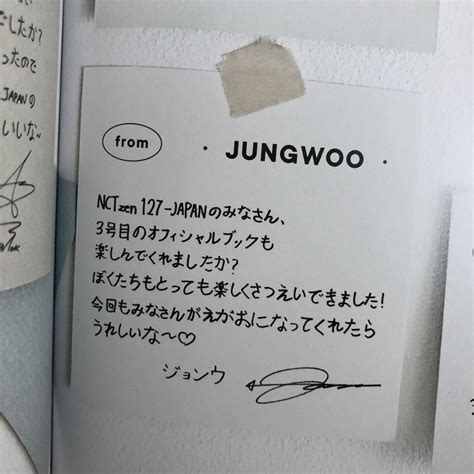 したか?
ったので
JAPANの
いいな~
from
· JUNGWOO ·
NCTzen 127-JAPANのみなさん、
3号目のオフィシャルブックも
楽しんでくれましたか?
ぼくたちもとっても楽しくさつえいできました!
今回もみなさんがえがおになってくれたら
うれしいな〜♡
ジョンウ